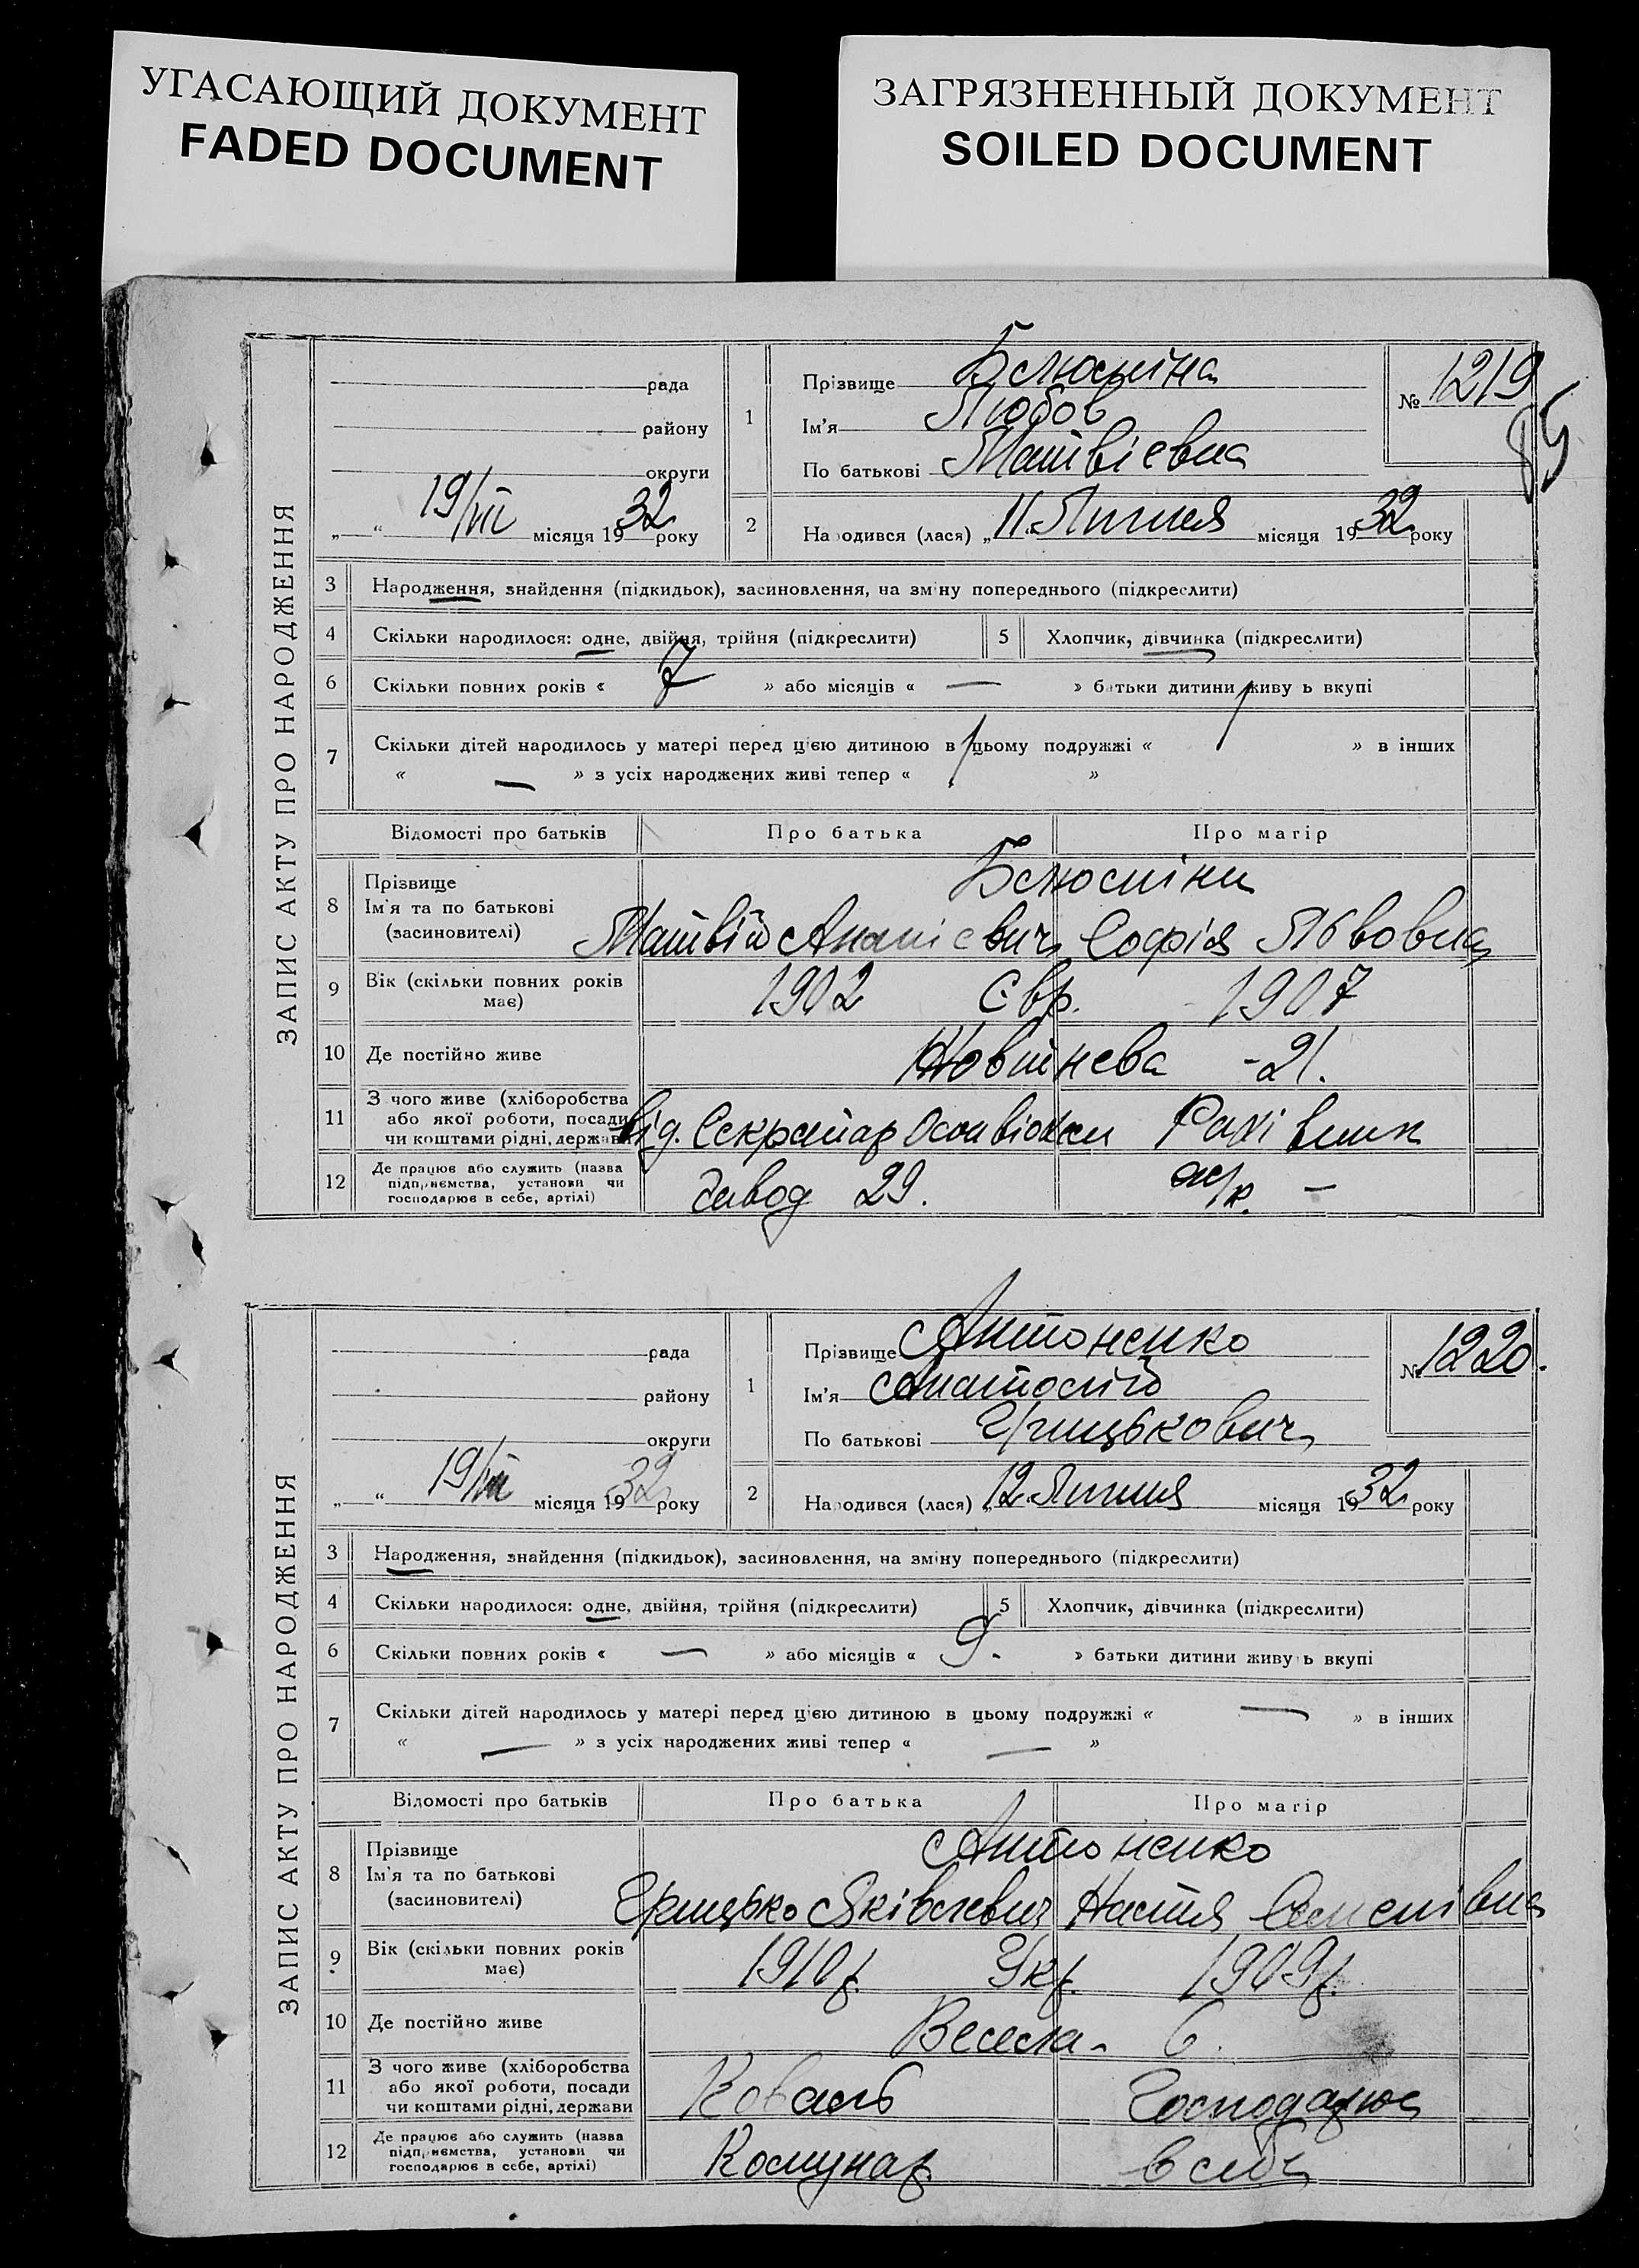 УГАСАЮЩИЙ ДОКУМЕНТ
FADED DOCUMENT
ЗАГРЯЗНЕННЫЙ ДОКУМЕНТ
SOILED DOCUMENT
ЗАПИС АКТУ ПРО НАРОДЖЕННЯ
рада
району
округи
„ “ 19/VII місяця 1932 року
1
Прізвище
Ім'я Любов
По батькові Матвієвна
№ 1219
85
2 Народився (лася) „11 Липня місяця 1932 року
3 Народження, знайдення (підкидьок), засиновлення, на зміну попереднього (підкреслити)
4 Скільки народилося: одне, двійня, трійня (підкреслити) 5 Хлопчик, дівчинка (підкреслити)
6 Скільки повних років « 7 » або місяців « — » батьки дитини живуть вкупі
7 Скільки дітей народилось у матері перед цією дитиною в цьому подружжі « 1 » в інших
« — » з усіх народжених живі тепер « 1 »
Відомості про батьків Про батька Про матір
8 Прізвище
Ім'я та по батькові
(засиновителі)
Матвій Софія Львовна
9 Вік (скільки повних років
має)
1902 Євр. 1907
10 Де постійно живе - 21.
11 З чого живе (хліборобства
або якої роботи, посади
чи коштами рідні, держави
Від. Секретар
12 Де працює або служить (назва
підприємства, установи чи
господарює в себе, артілі)
Завод 29. —
ЗАПИС АКТУ ПРО НАРОДЖЕННЯ
рада
району
округи
„ “ 19/VII місяця 1932 року
1
Прізвище Антоненко
Ім'я Анатолій
По батькові Грицькович
№ 1220.
2 Народився (лася) „12 Липня місяця 1932 року
3 Народження, знайдення (підкидьок), засиновлення, на зміну попереднього (підкреслити)
4 Скільки народилося: одне, двійня, трійня (підкреслити) 5 Хлопчик, дівчинка (підкреслити)
6 Скільки повних років « — » або місяців « 9. » батьки дитини живуть вкупі
7 Скільки дітей народилось у матері перед цією дитиною в цьому подружжі « — » в інших
« — » з усіх народжених живі тепер « — »
Відомості про батьків Про батька Про матір
8 Прізвище
Ім'я та по батькові
(засиновителі)
Антоненко
Грицько Яківлевич Настя Семенівна
9 Вік (скільки повних років
має)
1910 р. Укр. 1909 р.
10 Де постійно живе Весела - 6.
11 З чого живе (хліборобства
або якої роботи, посади
чи коштами рідні, держави
Коваль Господарює
12 Де працює або служить (назва
підприємства, установи чи
господарює в себе, артілі)
Комунар в себе